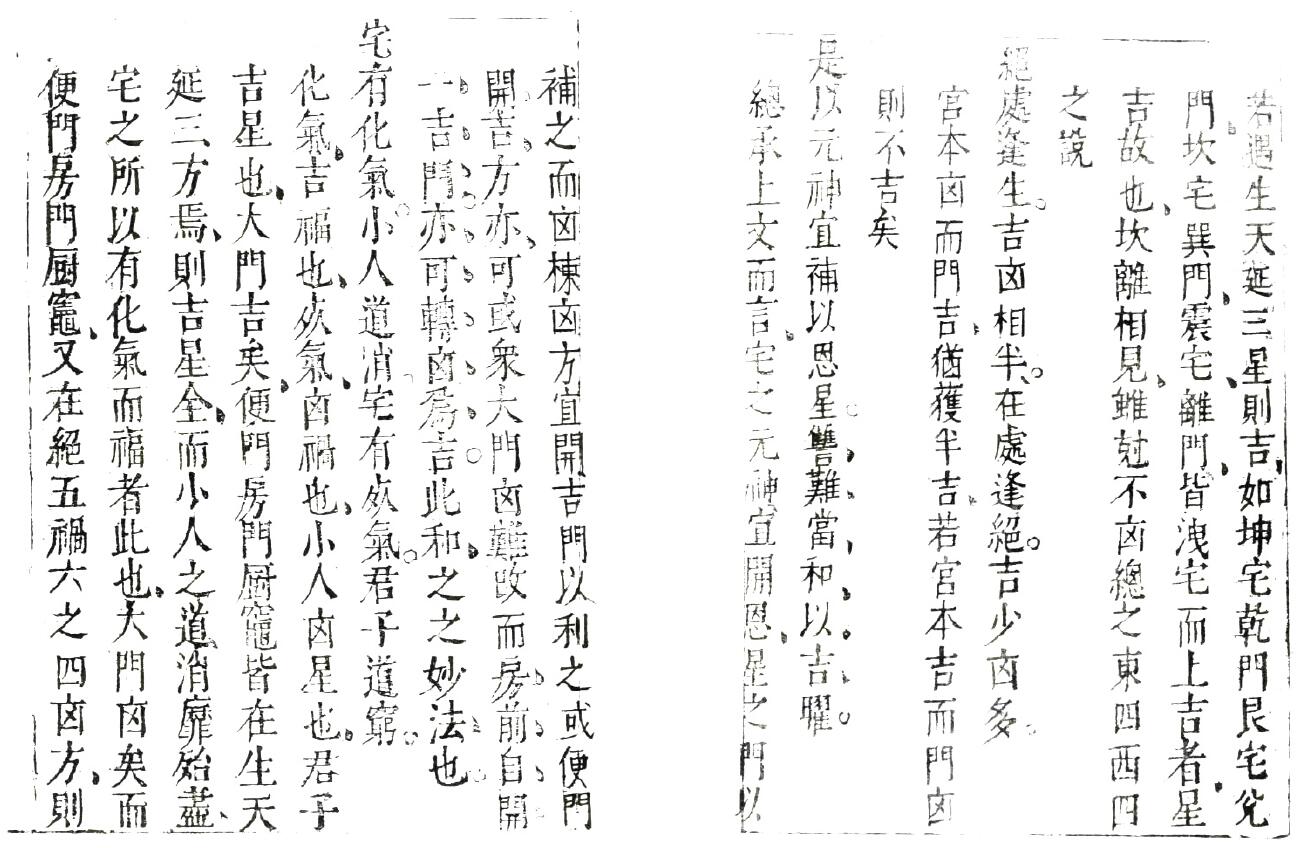 若遇生天延三星則吉如坤宅乾門艮宅兊
門坎宅巽門震宅離門皆洩宅而上吉者星
吉故也坎離相見雖尅不凶總之東四西四
之說
絕處逢生吉凶相半在處逢絕吉少凶多
宮本凶而門吉猶獲半吉若宮本吉而門凶
則不吉矣
是以元神宜補以恩星讐難當和以吉曜
總承上文而言宅之元神宜開恩星之門以
補之而凶棟凶方宜開吉門以利之或便門
開吉方亦可或衆大門凶難改而房前自開
一吉門亦可轉凶爲吉此和之之妙法也
宅有化氣小人道消宅有殀氣君子道窮
化氣吉福也殀氣凶禍也小人凶星也君子
吉星也大門吉矣便門房門厨竈皆在生天
延三方焉則吉星全而小人之道消靡殆盡
宅之所以有化氣而福者此也大門凶矣而
便門房門厨竈又在絕五禍六之四凶方則